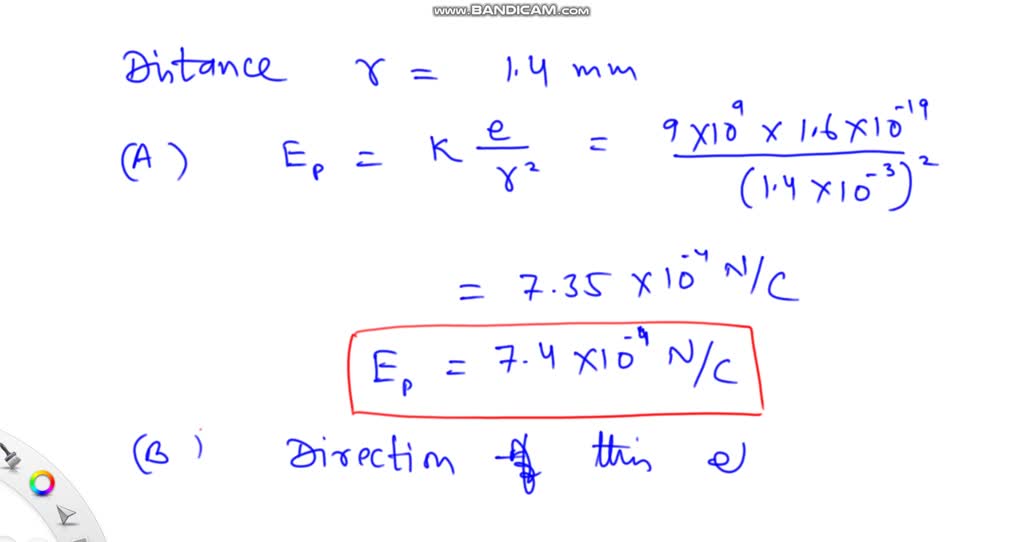 www.BANDICAM.com
Distance r = 1.4 mm
(A) Ep = K e/r² = 9×10⁹ × 1.6×10⁻¹⁹/(1.4×10⁻³)²
= 7.35 ×10⁻⁴ N/C
Ep = 7.4 ×10⁻⁴ N/C
(B) Direction of this e